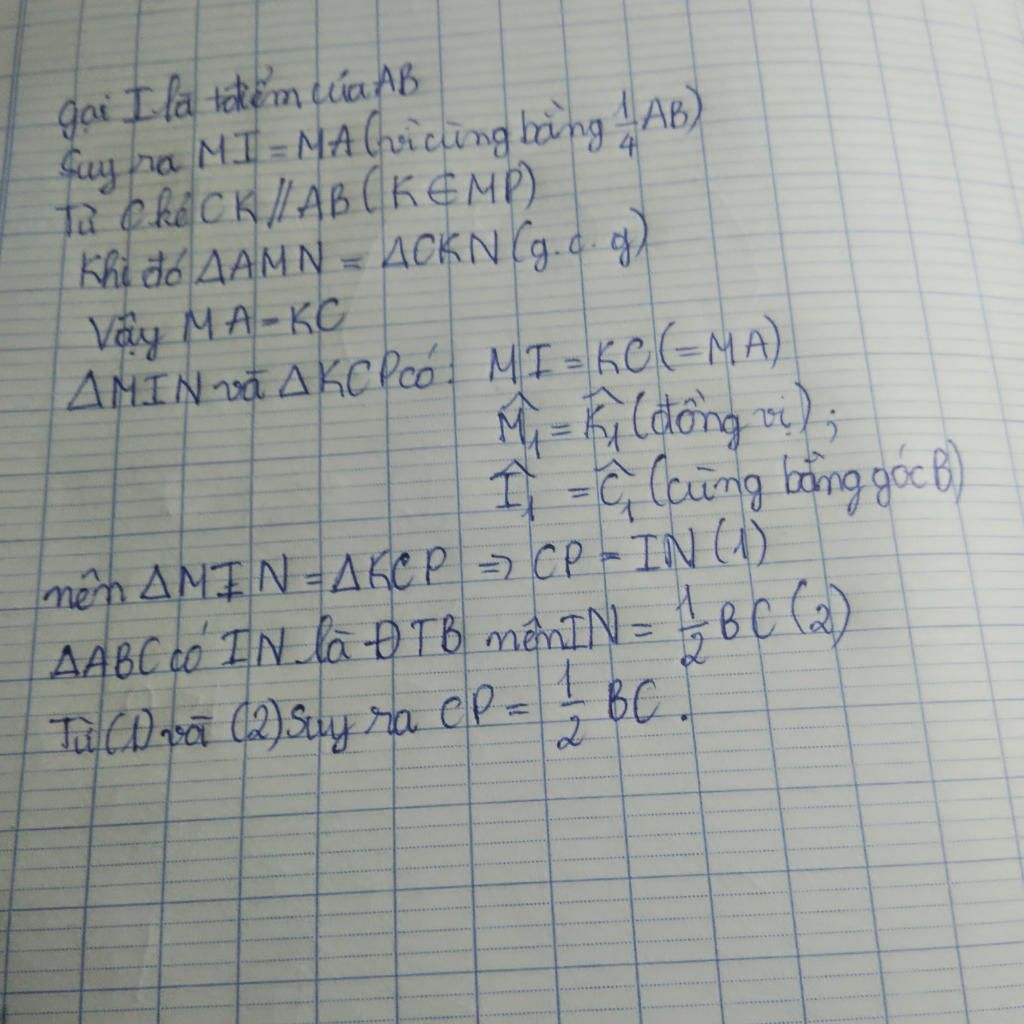 gọi I là tđiểm của AB
Suy ra MI = MA (vì cùng bằng \frac{1}{4} AB)
Từ C kẻ CK // AB (K ∈ MP)
Khi đó ΔAMN = ΔCKN (g.c.g)
Vậy MA = KC
ΔMIN và ΔKCP có: MI = KC (= MA)
\hat{M}_1 = \hat{K}_1 (đồng vị);
\hat{I}_1 = \hat{C}_1 (cùng bằng góc B)
nên ΔMIN = ΔKCP ⇒ CP = IN (1)
ΔABC có IN là ĐTB nên IN = \frac{1}{2} BC (2)
Từ (1) và (2) Suy ra CP = \frac{1}{2} BC.